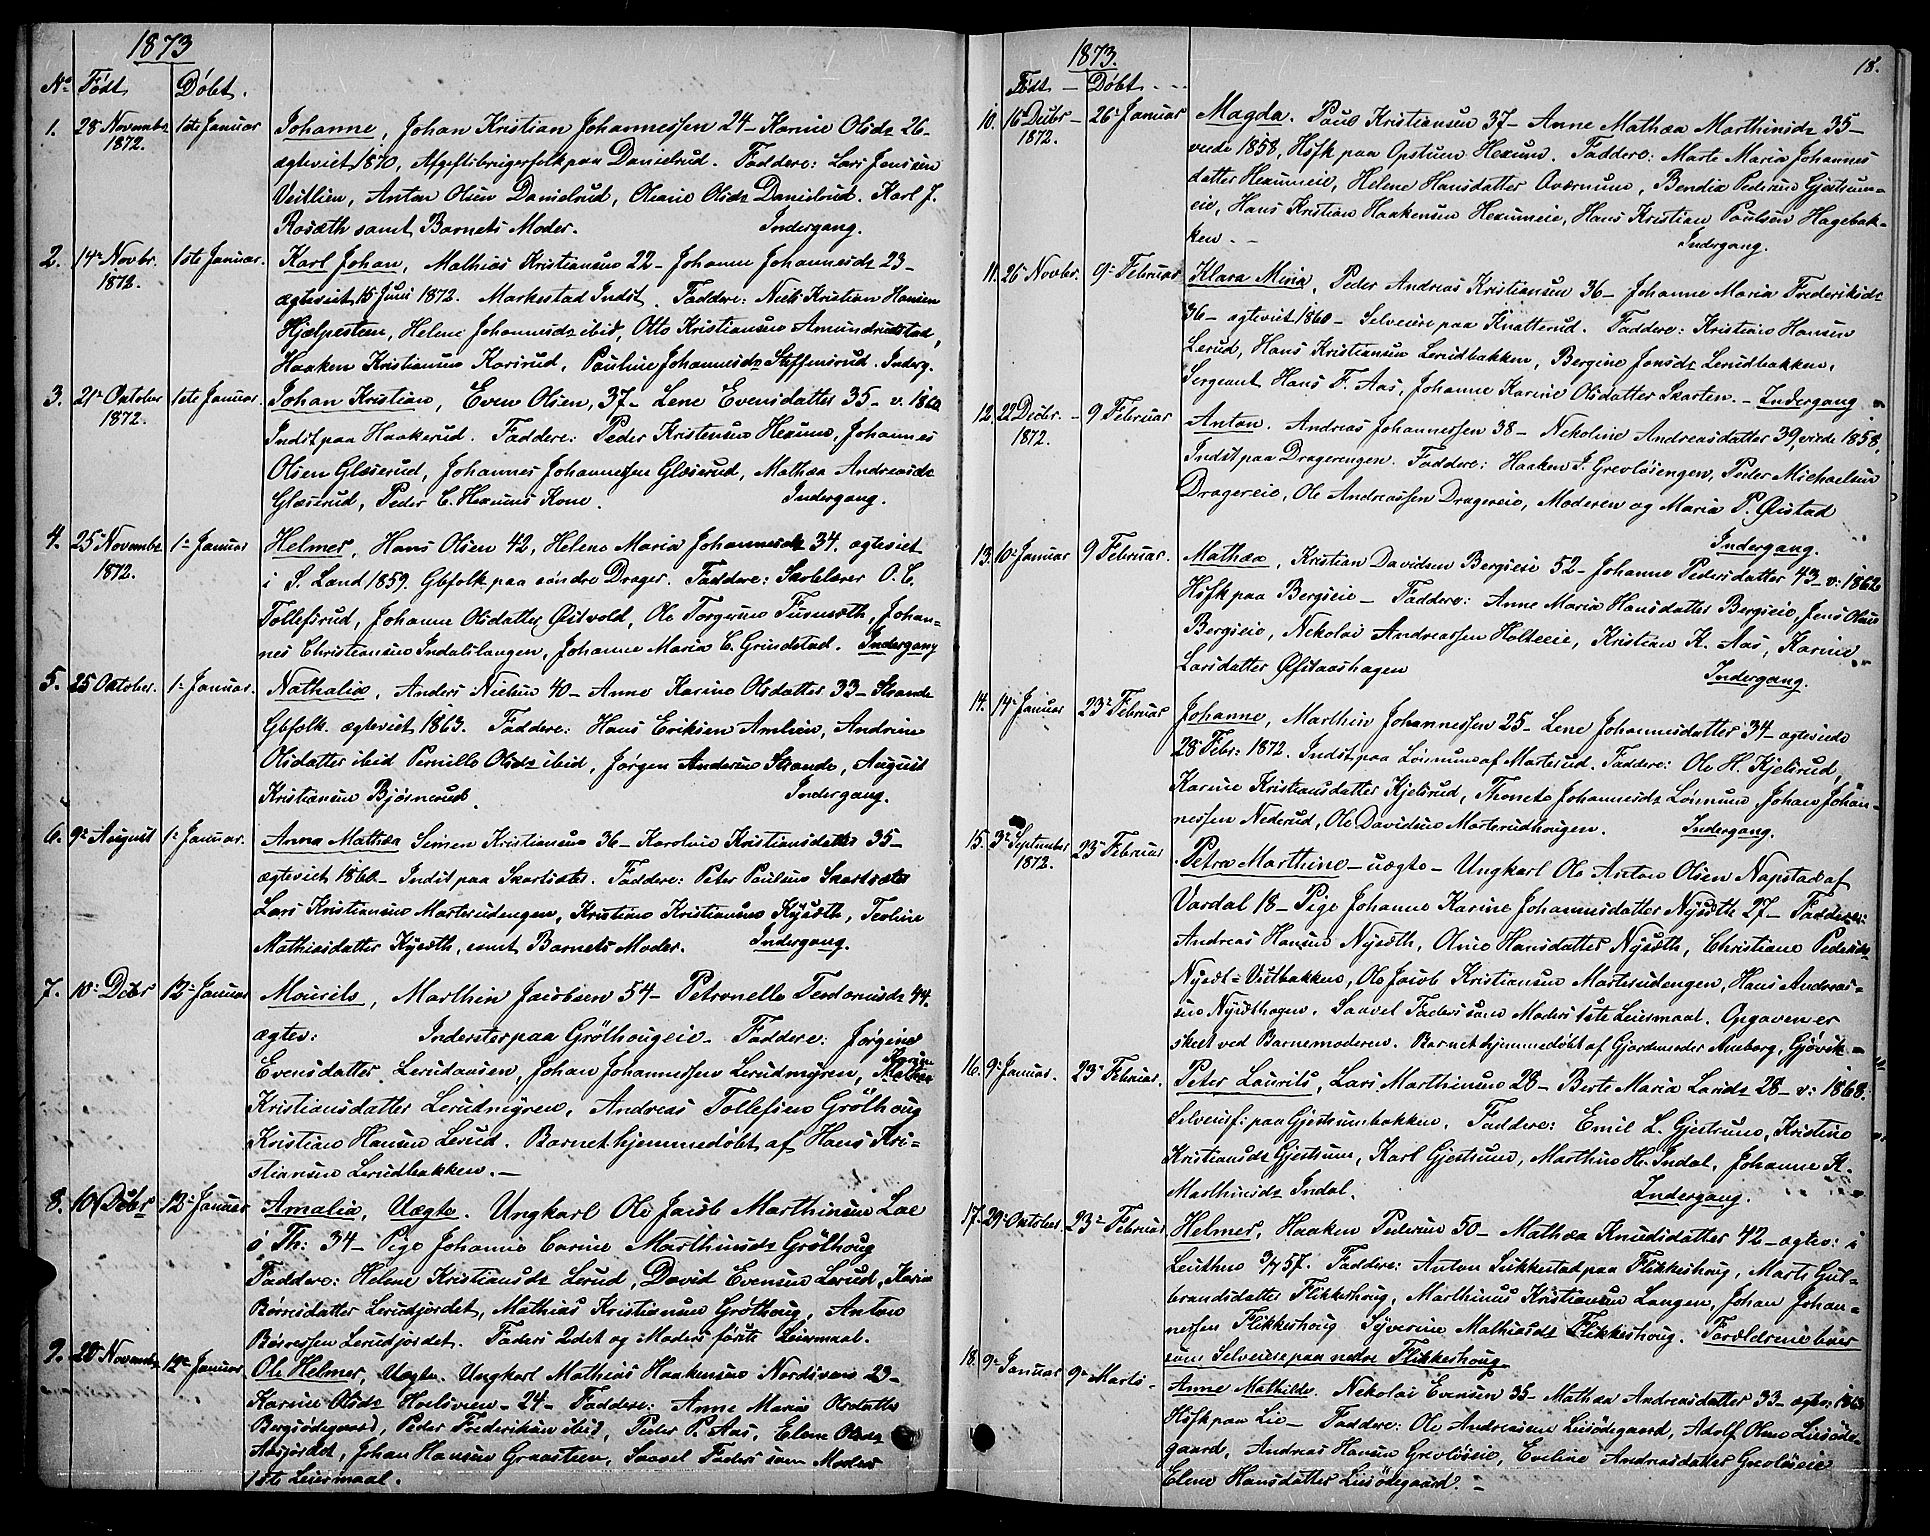 1873
No Født Døbt.
1. 28 Novembr 1ste Januar Johanne, Johan Kristian Johannessen 24 – Karine Olsdr 26 –
1872. ægteviet 1870, Afgiftsbrugerfolk paa Danielrud. Faddere: Lars Jenssen
Veitlien, Anton Olsen Danielrud, Oleane Olsdr Danielrud. Karl J.
Rosæth samt Barnets Moder. Indergang.
2. 14de Novbr. 1ste Januar. Karl Johan, Mathias Kristiansen 22 – Johanne Johannesdr 23 –
1872. ægteviet 15 Juni 1872. Markestad Indst. Faddere: Niels Kristian Hansen
Hjælpesteen, Helene Johannesdr ibid, Otto Kristiansen Amundrudstad,
Haaken Kristiansen Karirud, Pauline Johannesdr Steffensrud. Inderg.
3. 21de Oktober 1ste Januar. Johan Kristian, Even Olsen, 37 – Lene Evensdatter 35 – v. 1860
1872. Indst paa Haakerud. Faddere: Peder Kristensen Hexum, Johannes
Olsen Glæserud, Johannes Johannessen Glæserud, Mathea Andreasdr
Glæserud, Peder C. Hexums Kone. Indergang.
4. 25 Novembr 1. Januar Helmer, Hans Olsen 42, Helene Maria Johannesdr 34. ægteviet
1872. i S. Land 1859. Gbfolk paa søndre Drager. Faddere: Skolelærer O. C.
Tollefsrud, Johanne Olsdatter Østvold, Ole Torgersen Furusæth, Johan=
nes Christiansen Indalslangen, Johanne Maria C. Grindstad. Indergang
5. 25 Oktober. 1. Januar. Nathalia, Anders Nielsen 40 – Anne Karine Olsdatter 33 – Strande
Gbfolk. ægteviet 1863. Faddere: Hans Eriksen Amlien, Andrine
Olsdatter ibid Pernille Olsdr ibid, Jørgen Andersen Strande, August
Kristiansen Bjørnerud. Indergang.
6. 9de August 1. Januar. Anna Mathea Simen Kristiansen 36 – Karoline Kristiansdatter 35 –
ægteviet 1860 – Indst paa Skartsæter. Faddere: Peter Paulsen Skartsæter
Lars Kristiansen Marterudengen, Kristine Kristiansen Kysæth, Teoline
Mathiasdatter Kysæth, samt Barnets Moder. Indergang.
7. 10. Debr 12. Januar Mourits, Marthin Jacobsen 54 – Petronelle Teodorusdr 44.
ægtev: Inderster paa Grølhougeie. Faddere: Jørgine
Evensdatter Lerudaasen, Johan Johannessen Lerudmyren, Karine
Kristiansdatter Lerudmyren, Andreas Tollefsen Grølhoug
Kristine Hansen Lerud. Barnet hjemmedøbt af Hans Kri=
stiansen Lerudbakken. –
8. 10 Debr 12. Januar Amalia, Uægte. Ungkarl Ole Jacob Marthinsen Lae
i Th: 34 – Pige Johanne Carine Marthinsdr Grølhoug
Faddere: Helene Kristiansdr Lerud, David Evensen Lerud, Karen
Børresdatter Lerudjordet, Mathias Kristiansen Grølhoug, Anton
Børressen Lerudjordet. Faders 2det og Moders første Leiermaal.
9. 20 Novembr 12te Januar Ole Helmer, Uægte. Ungkarl Mathias Haakensen Nordsveen 23 –
Karine Olsdr Hoelsveen – 24 – Faddere: Anne Maria Olsdatter
Bergsødegaard, Peder Frederiksen ibid, Peder P. Aas, Elene Olsdr
Aasjordet, Johan Hansen Graasteen, Saavel Faders som Moders
1ste Leiermaal.
1873. 18.
Født – Døbt –
10. 16 Debr – 26. Januar Magda. Paul Kristiansen 37 – Anne Mathea Marthinsdr 35 –
1872. viede 1858, Hsfk paa Opstuen Hexum. Faddere: Marte Maria Johannes
datter Hexumeie, Helene Hansdatter Aværnum, Bendix Pedersen Gjestrum=
eie, Hans Kristian Haakensen Hexumeie, Hans Kristian Paulsen Hagebak=
ken. – Indergang.
11. 26 Novbr. 9. Februar Klara Mina, Peder Andreas Kristiansen 36 – Johanne Maria Frederiksdr
36 – ægteviet 1860 – Selveiere paa Knatterud. Faddere: Kristine Hansen
Lerud, Hans Kristiansen Lerudbakken, Bergine Jensdr Lerudbakken,
Sergeant Hans F. Aas, Johanne Karine Olsdatter Skarten. – Indergang
12. 22 Decbr. – 9 Februar Anton. Andreas Johannessen 38 – Nekoline Andreasdatter 39, viede 1858,
1872. Indst paa Dragerengen. Faddere: Haaken J. Grevløsengen, Peder Michaelsen
Dragereie, Ole Andreassen Dragereie, Moderen og Maria P. Øistad
Indergang.
13. 10. Januar 9 Februar. Mathea, Kristian Davidsen Bergseie 52 – Johanne Pedersdatter 43 – v: 1862
Hsfk paa Bergseie – Faddere: Anne Maria Hansdatter Bergseie, Jens Olsen
Bergseie, Nekolai Andreassen Holteeie, Kristian K. Aas, Karine
Larsdatter Øfstaashagen Indergang.
14. 14. Januar 23. Februar Johanne, Marthin Johannessen 25 – Lene Johannesdatter 34 – ægteviede
28 Febr: 1872. Indst paa Lønnum af Marterud. Faddere: Ole H. Kjelsrud,
Karine Kristiansdatter Kjelsrud, Thonete Johannesdr Lønnum, Johan Johan=
nessen Nederud, Ole Davidsen Marterudhougen. Indergang.
15. 3. September 23. Februar Petra Marthine – uægte – Ungkarl Ole Anton Olsen Napstad af
1872. Vardal 18 – Pige Johanne Karine Johannesdatter Nysæth 27 – Faddere:
Andreas Hansen Nysæth, Oline Hansdatter Nysæth, Christiane Pedersdr
Nysæt=Vestbakken, Ole Jacob Kristiansen Marterudengen, Hans Andreas=
sen Nysæthagen. Saavel Faders som Moders 1ste Leiermaal. Opgaven er
skeet ved Barnemoderen. Barnet hjemmedøbt af Gjordemoder Amborg, Gjøvik –
16. 9. Januar. 23. Februar. Peter Laurits, Lars Marthinsen 28 – Berte Maria Larsdr 28 – v: 1868.
Selveierf: paa Gjestrumbakken. Faddere: Emil L. Gjestrum, Kristine
Kristiansdr Gjestrum, Karl Gjestrum, Marthin H. Indal, Johanne K.
Marthinsdr Indal. Indergang.
17. 29. Oktober. 23. Februar Helmer, Haaken Pedersen 50 – Mathea Knudsdatter 42 – ægtev: i
Leuthen 3/7 57. Faddere: Anton Sukkestad paa Flikkeshoug, Marte Gul=
brandsdatter Flikkeshoug, Marthinus Kristiansen Langen, Johan Johan=
nessen Flikkeshoug Syverine Mathiasdr Flikkeshoug. Forældrene boer
som Selveiere paa nedre Flikkeshoug
18. 9. Januar 9. Marts – Anne Mathilde. Nekolai Evensen 35 – Mathea Andreasdatter 33 – ægtev: 1863
Hsfk paa Lie – Faddere: Ole Andreassen Liesødegaard, Adolf Olsen Liesøde=
gaard, Andreas Hansen Grevløseie, Eveline Andreasdatter Grevløseie
Elene Hansdatter Liesødegaard. –